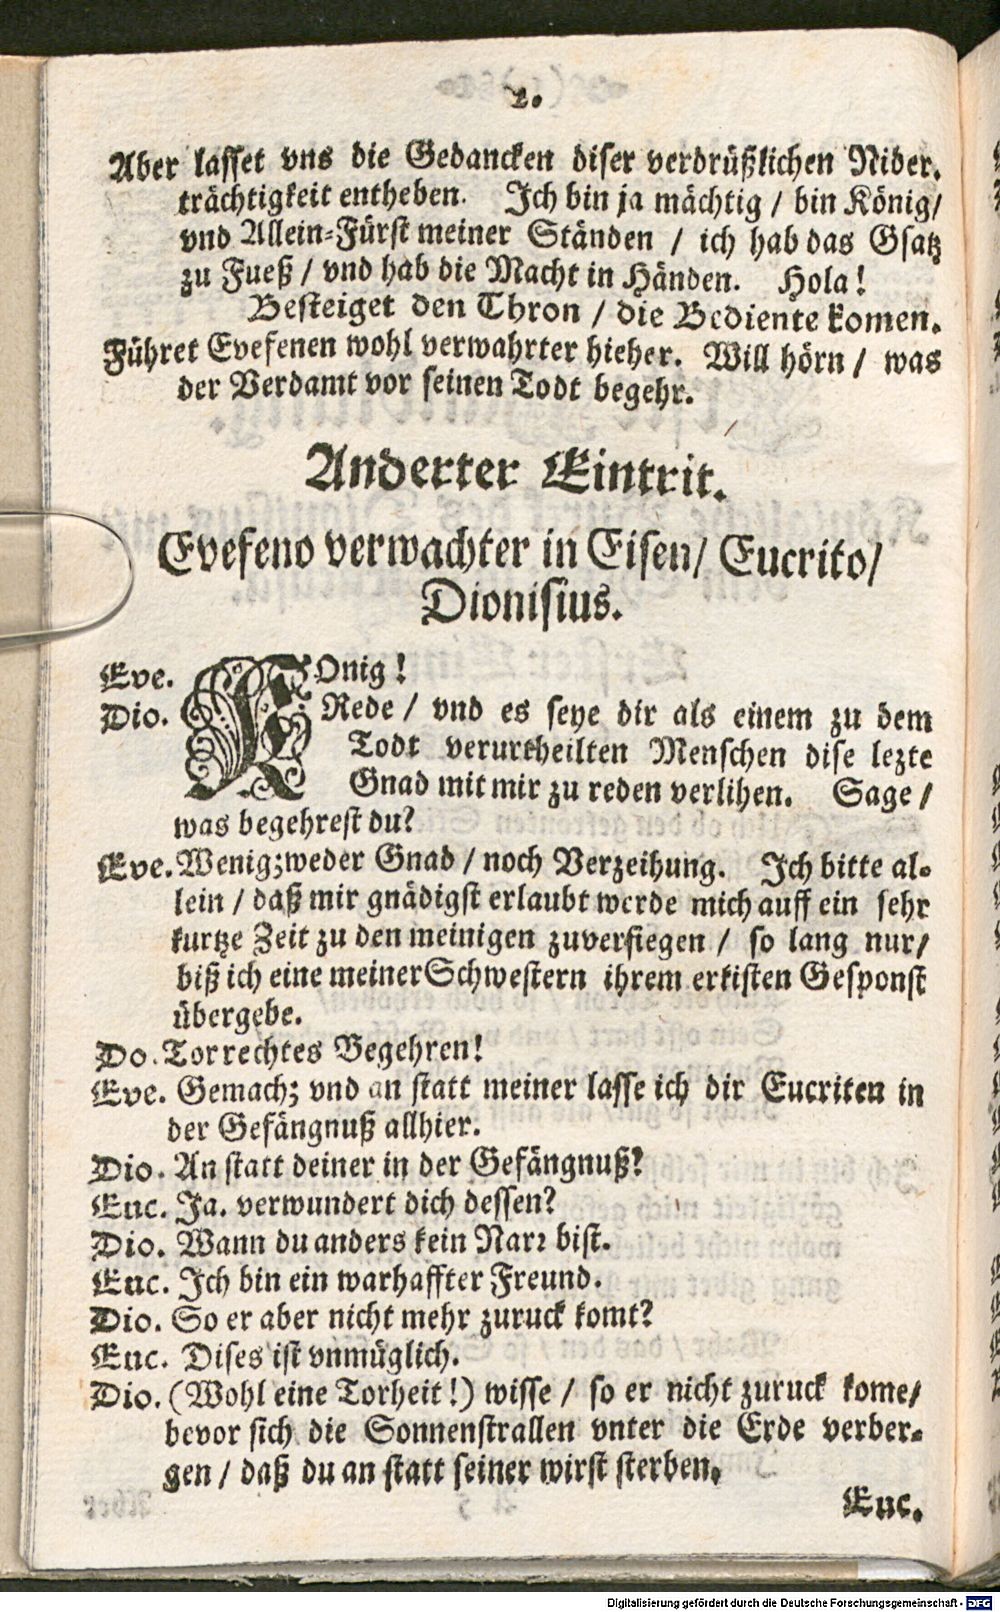 2.
Aber lasset vns die Gedancken diser verdrüßlichen Nider-
trächtigkeit entheben. Ich bin ja mächtig / bin König /
vnd Allein-Fürst meiner Ständen / ich hab das Gsatz
zu Fueß / vnd hab die Macht in Händen. Hola!
Besteiget den Thron / die Bediente komen.
Führet Evefenen wohl verwahrter hieher. Will hörn / was
der Verdamt vor seinen Todt begehr.
Anderter Eintrit.
Evefeno verwachter in Eisen / Eucrito /
Dionisius.
Eve. KOnig!
Dio. Rede / vnd es seye dir als einem zu dem
Todt verurtheilten Menschen dise lezte
Gnad mit mir zu reden verlihen. Sage /
was begehrest du?
Eve. Wenig; weder Gnad / noch Verzeihung. Ich bitte al-
lein / daß mir gnädigst erlaubt werde mich auff ein sehr
kurtze Zeit zu den meinigen zuverfiegen / so lang nur /
biß ich eine meiner Schwestern ihrem erkisten Gesponst
übergebe.
Do. Torrechtes Begehren!
Eve. Gemach; vnd an statt meiner lasse ich dir Eucriten in
der Gefängnuß allhier.
Dio. An statt deiner in der Gefängnuß?
Euc. Ja. verwundert dich dessen?
Dio. Wann du anders kein Narr bist.
Euc. Ich bin ein warhaffter Freund.
Dio. So er aber nicht mehr zuruck komt?
Euc. Dises ist vnmüglich.
Dio. (Wohl eine Torheit!) wisse / so er nicht zuruck kome /
bevor sich die Sonnenstrallen vnter die Erde verber-
gen / daß du an statt seiner wirst sterben.
Euc.
Digitalisierung gefördert durch die Deutsche Forschungsgemeinschaft - DFG